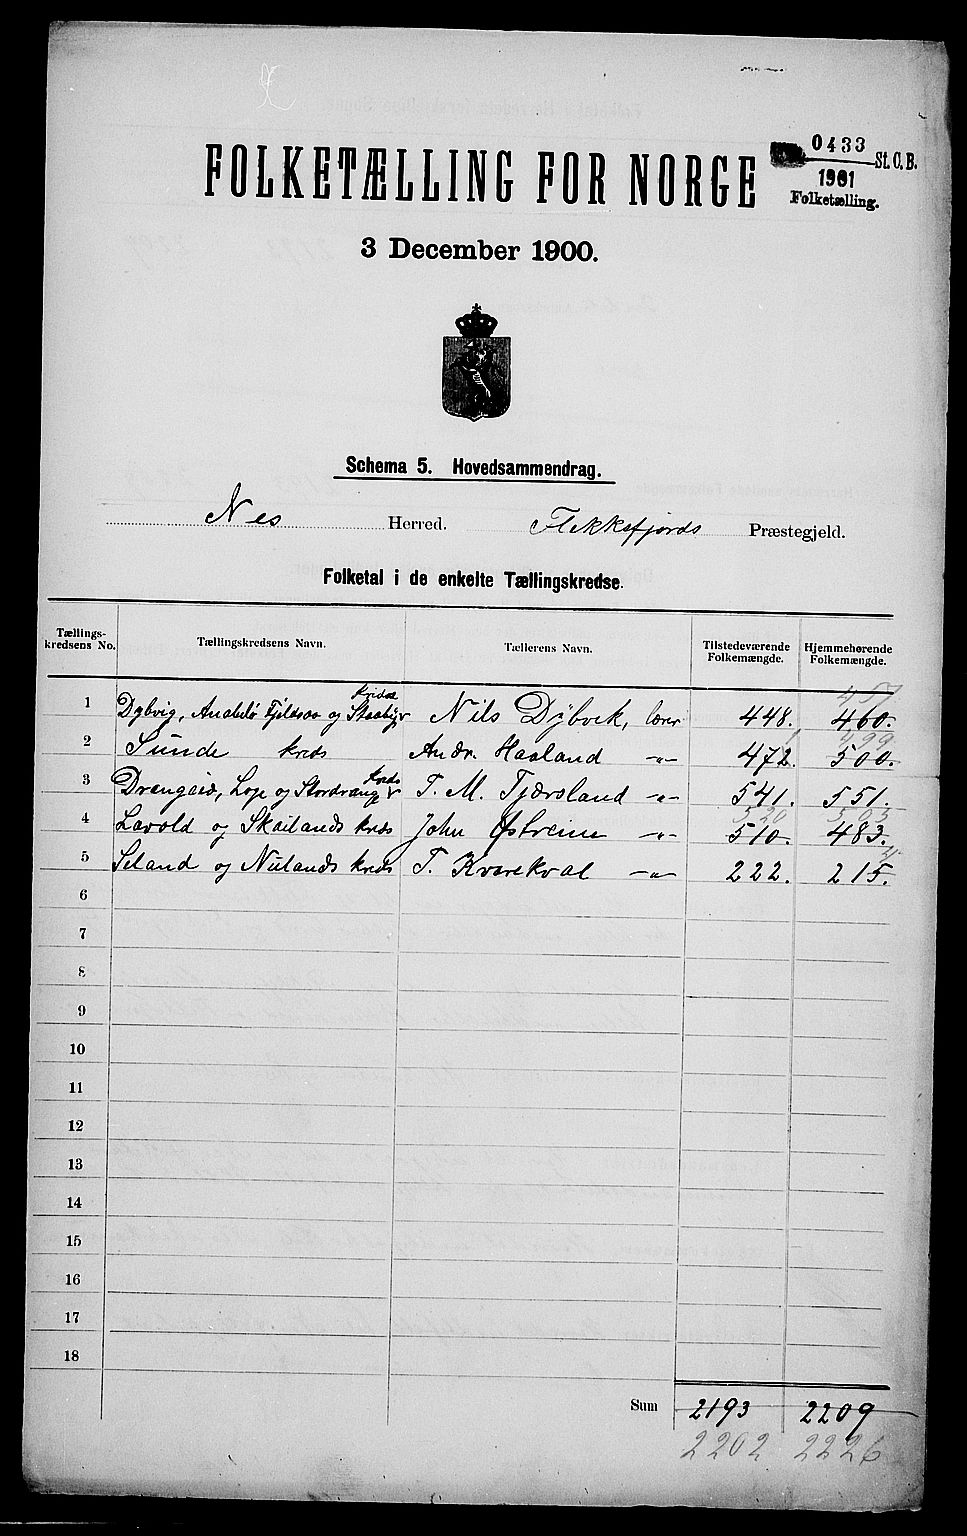 0433
St. C. B.
1901
Folketælling.
FOLKETÆLLING FOR NORGE
3 December 1900.
Schema 5. Hovedsammendrag.
Nes Herred. Flekkefjords Præstegjeld.
Folketal i de enkelte Tællingskredse.
Tællings-kredsens No. Tællingskredsens Navn. Tællerens Navn. Tilstedeværende Folkemængde. Hjemmehørende Folkemængde.
457
1 Dybvig, Andelø Fjeldsaa og kreds Nils Dybvik, lærer 448. 460.
1 499
2 Sunde kreds Andr. Haaland -"- 472. 500.
3 Drangeid, Loge og Stordrange kreds T. M. Tjørsland -"- 541. 551.
520 503
4 Lavold og Skailands kreds John Østreim -"- 510. 483.
5 Seland og Nulands kreds T. Kvarekval -"- 222. 215.
6
7
8
9
10
11
12
13
14
15
16
17
18
Sum 2193 2209
2202 2226